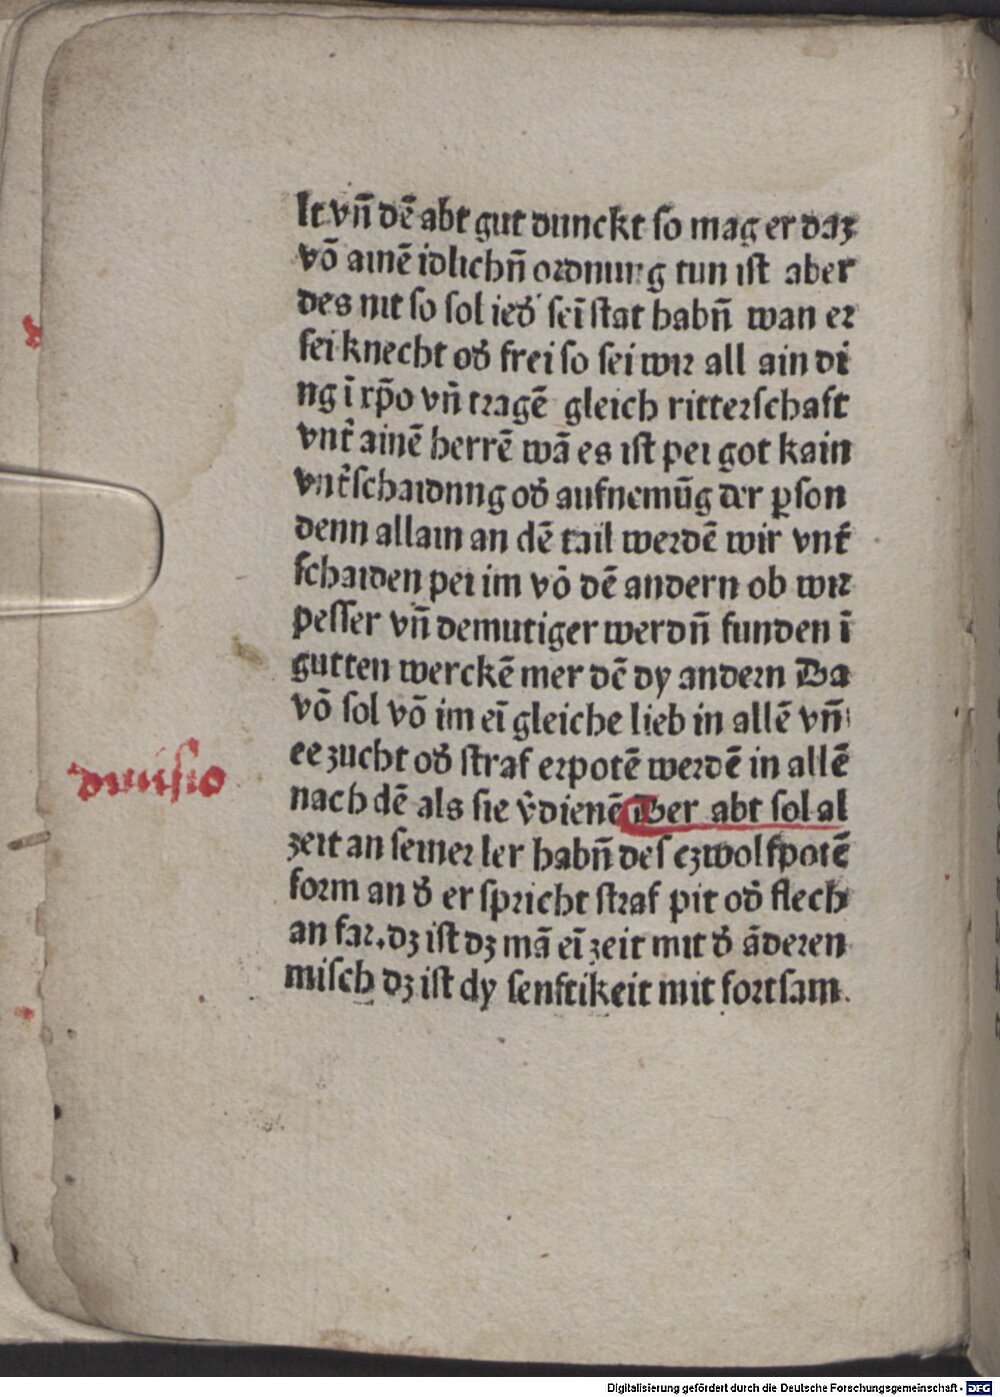 lt vñ dē abt gut dunckt so mag er daz
vō ainē idlichñ ordnung tun ist aber
des nit so sol ied' seī stat habñ wan er
sei knecht od' frei so sei wir all ain di
ng ī xp̄o vñ tragē gleich ritterschaft
vnt' ainē herrē wā es ist pei got kain
vnt'schaidnng od' aufnemūg der ꝑson
denn allain an dē tail werdē wir vnt'
schaiden pei im vō dē andern ob wir
pesser vñ demutiger werdñ funden ī
gutten werckē mer dē dy andern Da
vō sol vō im eī gleiche lieb in allē vñ
ee zucht od' straf erpotē werdē in allē
nach dē als sie v'dienē Der abt sol al
diuisio
zeit an seiner ler habñ des czwolfpotē
form an d' er spricht straf pit od' flech
an far. dz ist dz mā eī zeit mit d' āderen
misch dz ist dy senftikeit mit fortsam.
Digitalisierung gefördert durch die Deutsche Forschungsgemeinschaft - DFG